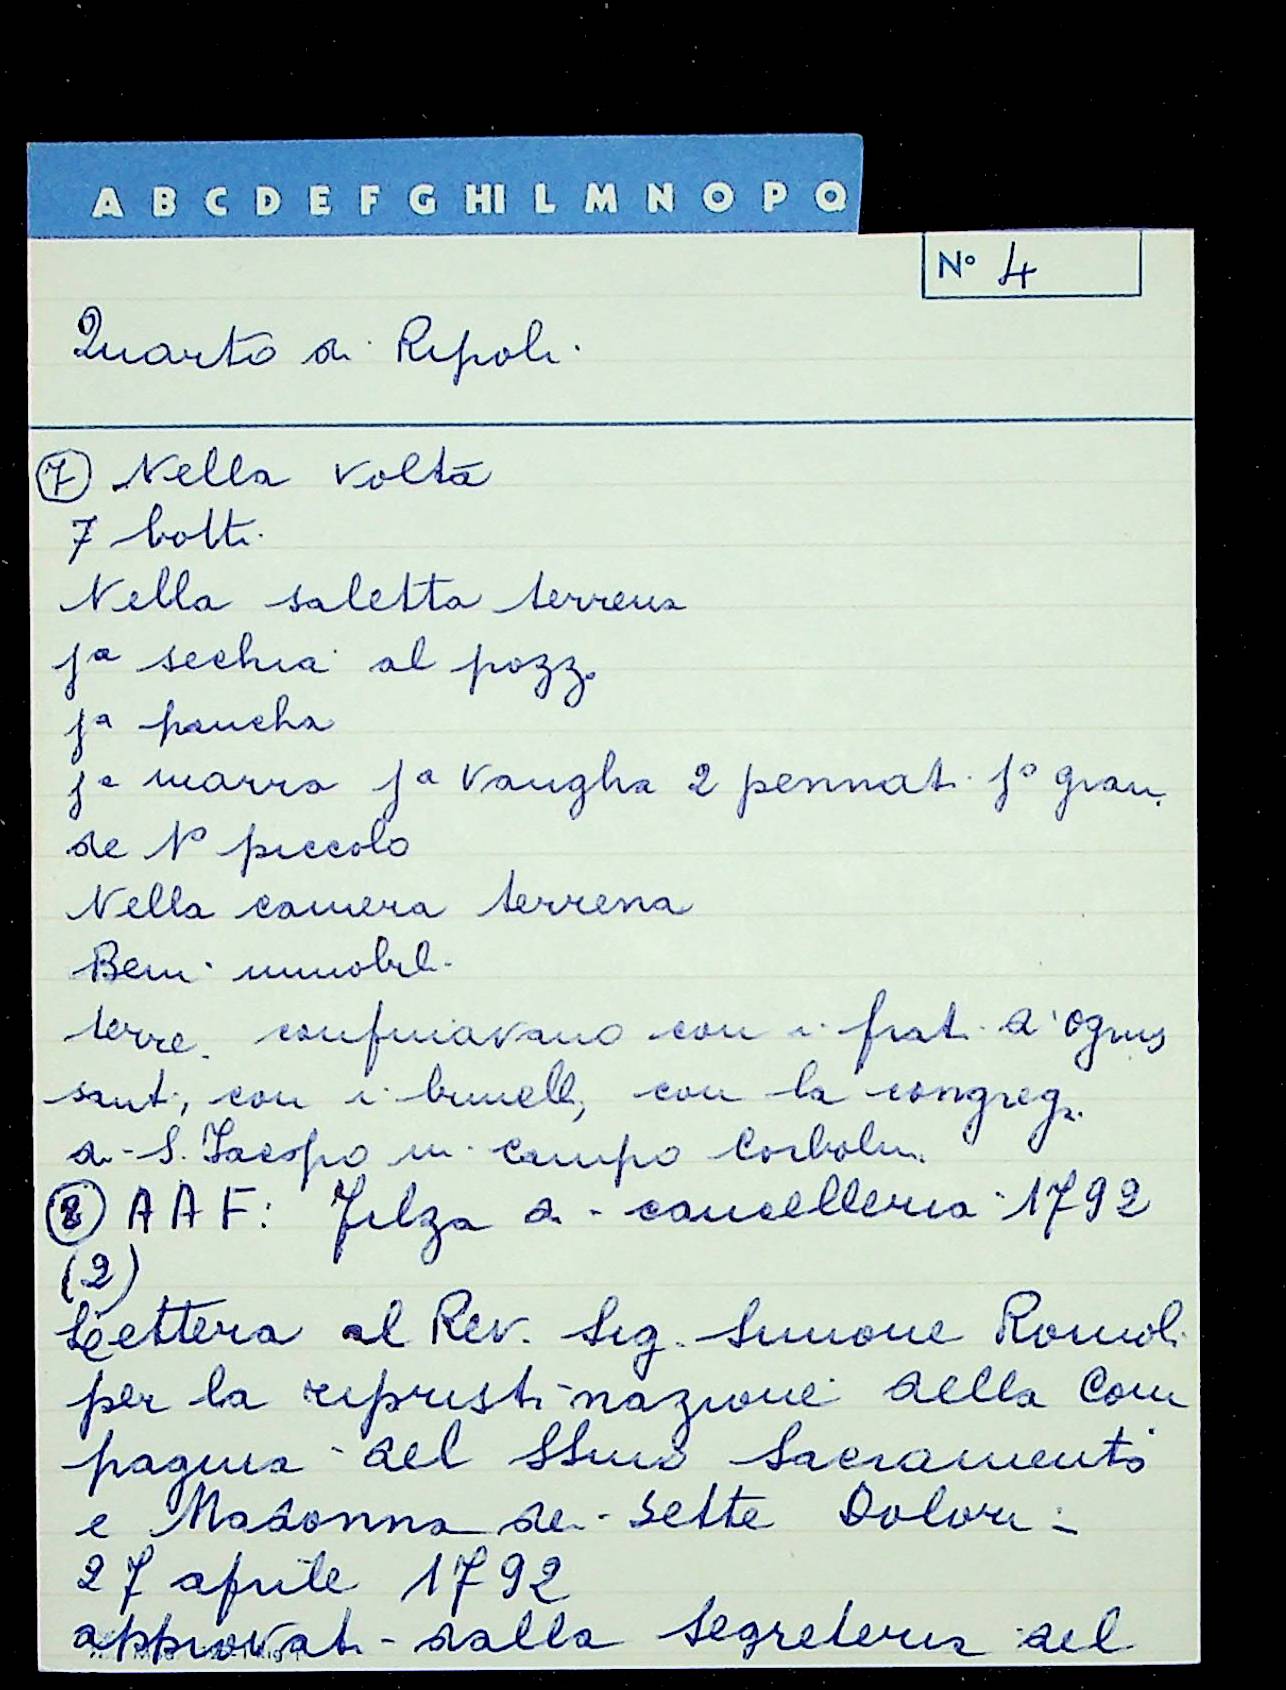 A B C D E F G HI L M N O P Q
N° 4
Quarto di Ripoli
7 Nella volta
7 botti
Nella saletta terrena
1a sechia al pozzo
1a pancha
1a marra 1a vangha 2 pennati 1° gran
de 1° piccolo
Nella camera terrena
Beni immobili
terre confinavano con i frati d'ognis
santi, con i brunelli, con la congreg.
di S. Jacopo in campo Corbolini
8 A A F: Filza di cancelleria 1792
(2)
Lettera al Rev. Sig. Simone Romoli
per la ripristinazione della Com
pagnia del SSmo Sacramento
e Madonna dei Sette Dolori =
27 aprile 1792
approvati dalla segreteria del